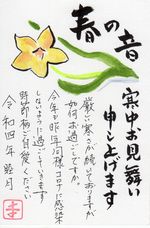 春の音
寒中お見舞い
申し上げます
厳しい寒さが続いておりますが
如何お過ごしですか
今年も昨年同様コロナに感染
しないように過ごしていきます
時節柄ご自愛ください
令和四年睦月